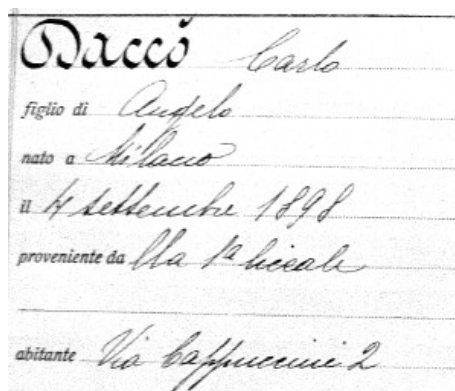 Daccò Carlo
figlio di Angelo
nato a Milano
il 4 settembre 1898
proveniente da lla 1ª liceale
abitante Via Cappuccini 2